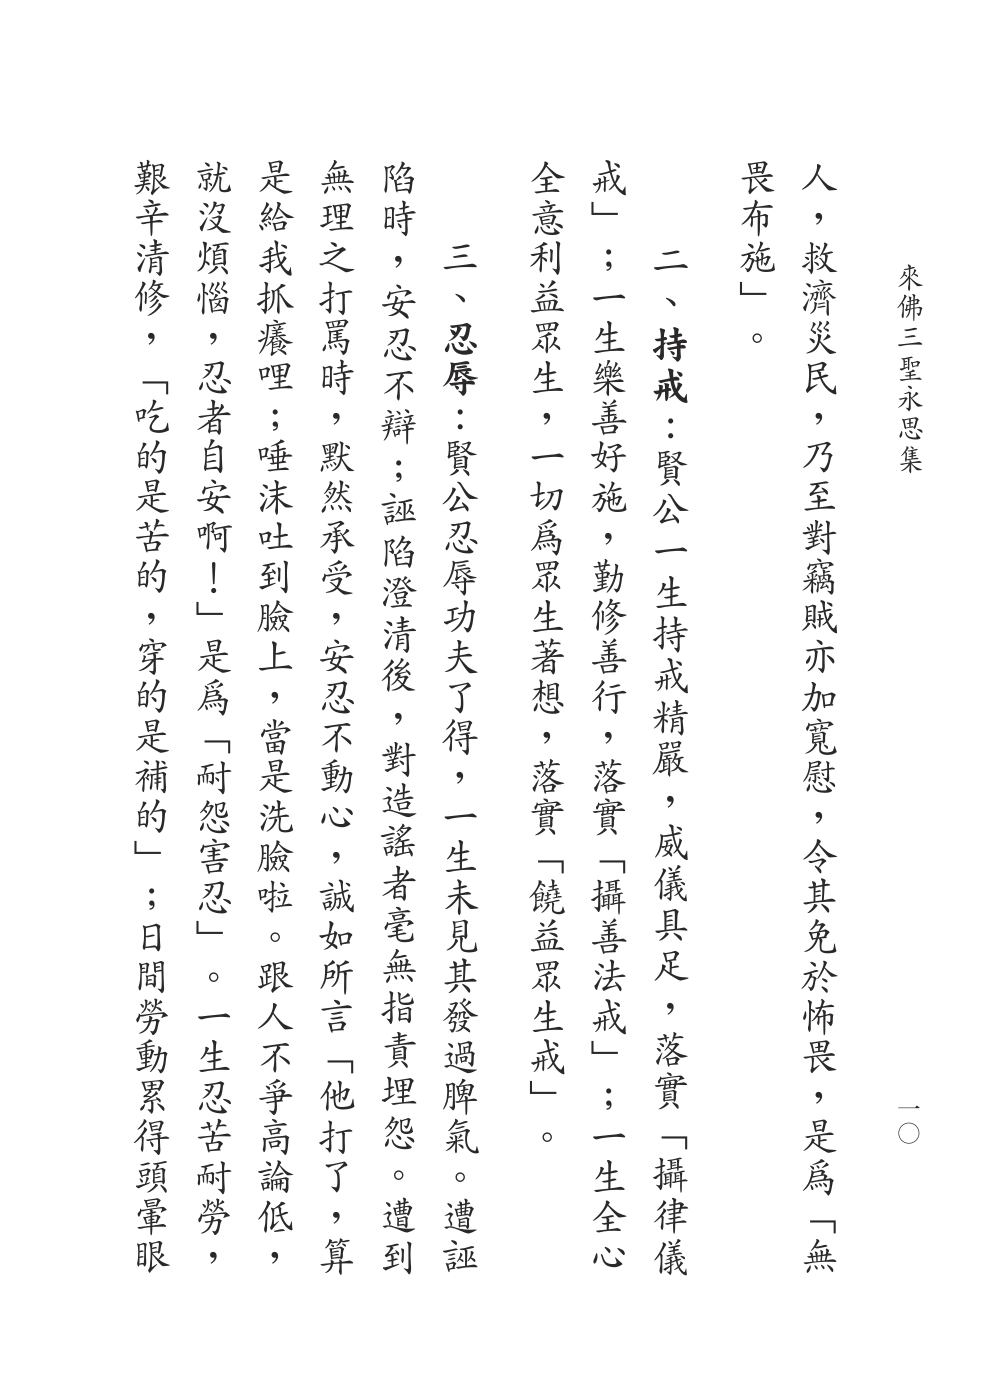 來佛三聖永思集
一〇
人，救濟災民，乃至對竊賊亦加寬慰，令其免於怖畏，是爲「無
畏布施」。
二、持戒：賢公一生持戒精嚴，威儀具足，落實「攝律儀
戒」；一生樂善好施，勤修善行，落實「攝善法戒」；一生全心
全意利益眾生，一切爲眾生著想，落實「饒益眾生戒」。
三、忍辱：賢公忍辱功夫了得，一生未見其發過脾氣。遭誣
陷時，安忍不辯；誣陷澄清後，對造謠者毫無指責埋怨。遭到
無理之打罵時，默然承受，安忍不動心，誠如所言「他打了，算
是給我抓癢哩；唾沫吐到臉上，當是洗臉啦。跟人不爭高論低，
就沒煩惱，忍者自安啊！」是爲「耐怨害忍」。一生忍苦耐勞，
艱辛清修，「吃的是苦的，穿的是補的」；日間勞動累得頭暈眼